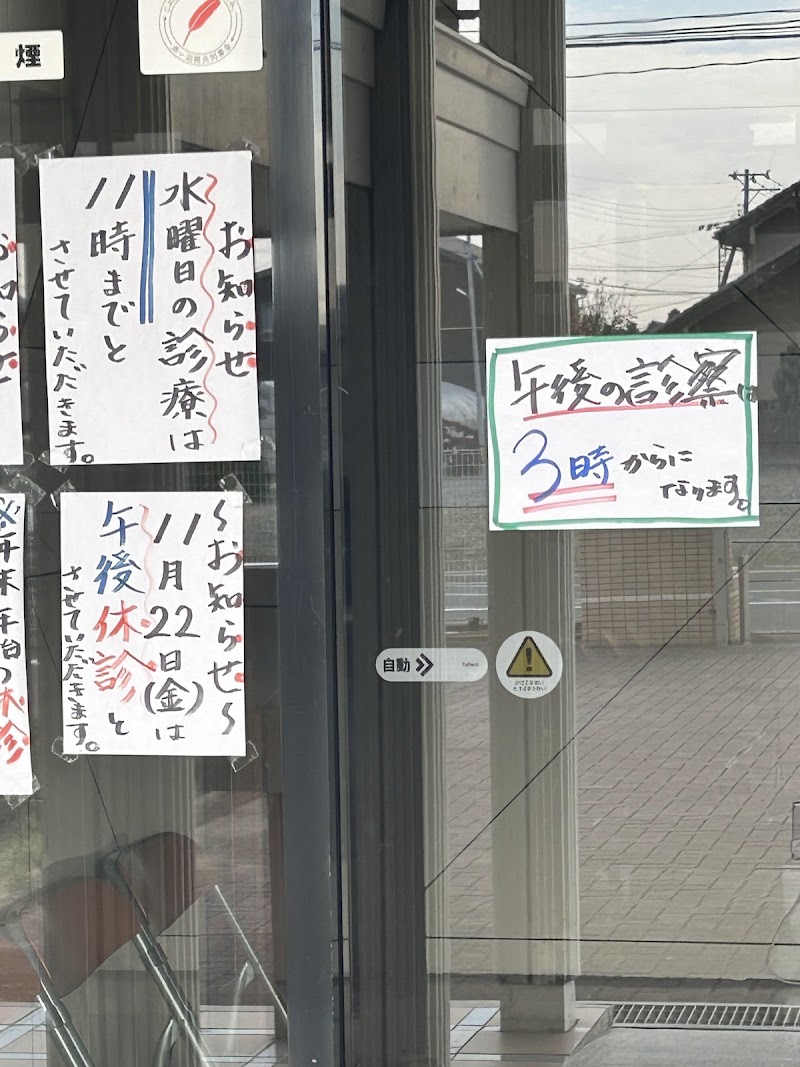 煙
お知らせ
水曜日の診療は
11時までと
させていただきます。
〜お知らせ〜
11月22日(金)は
午後休診と
させていただきます。
午後の診察は
3時からに
なります。
自動
お知らせ
※年末年始の休診